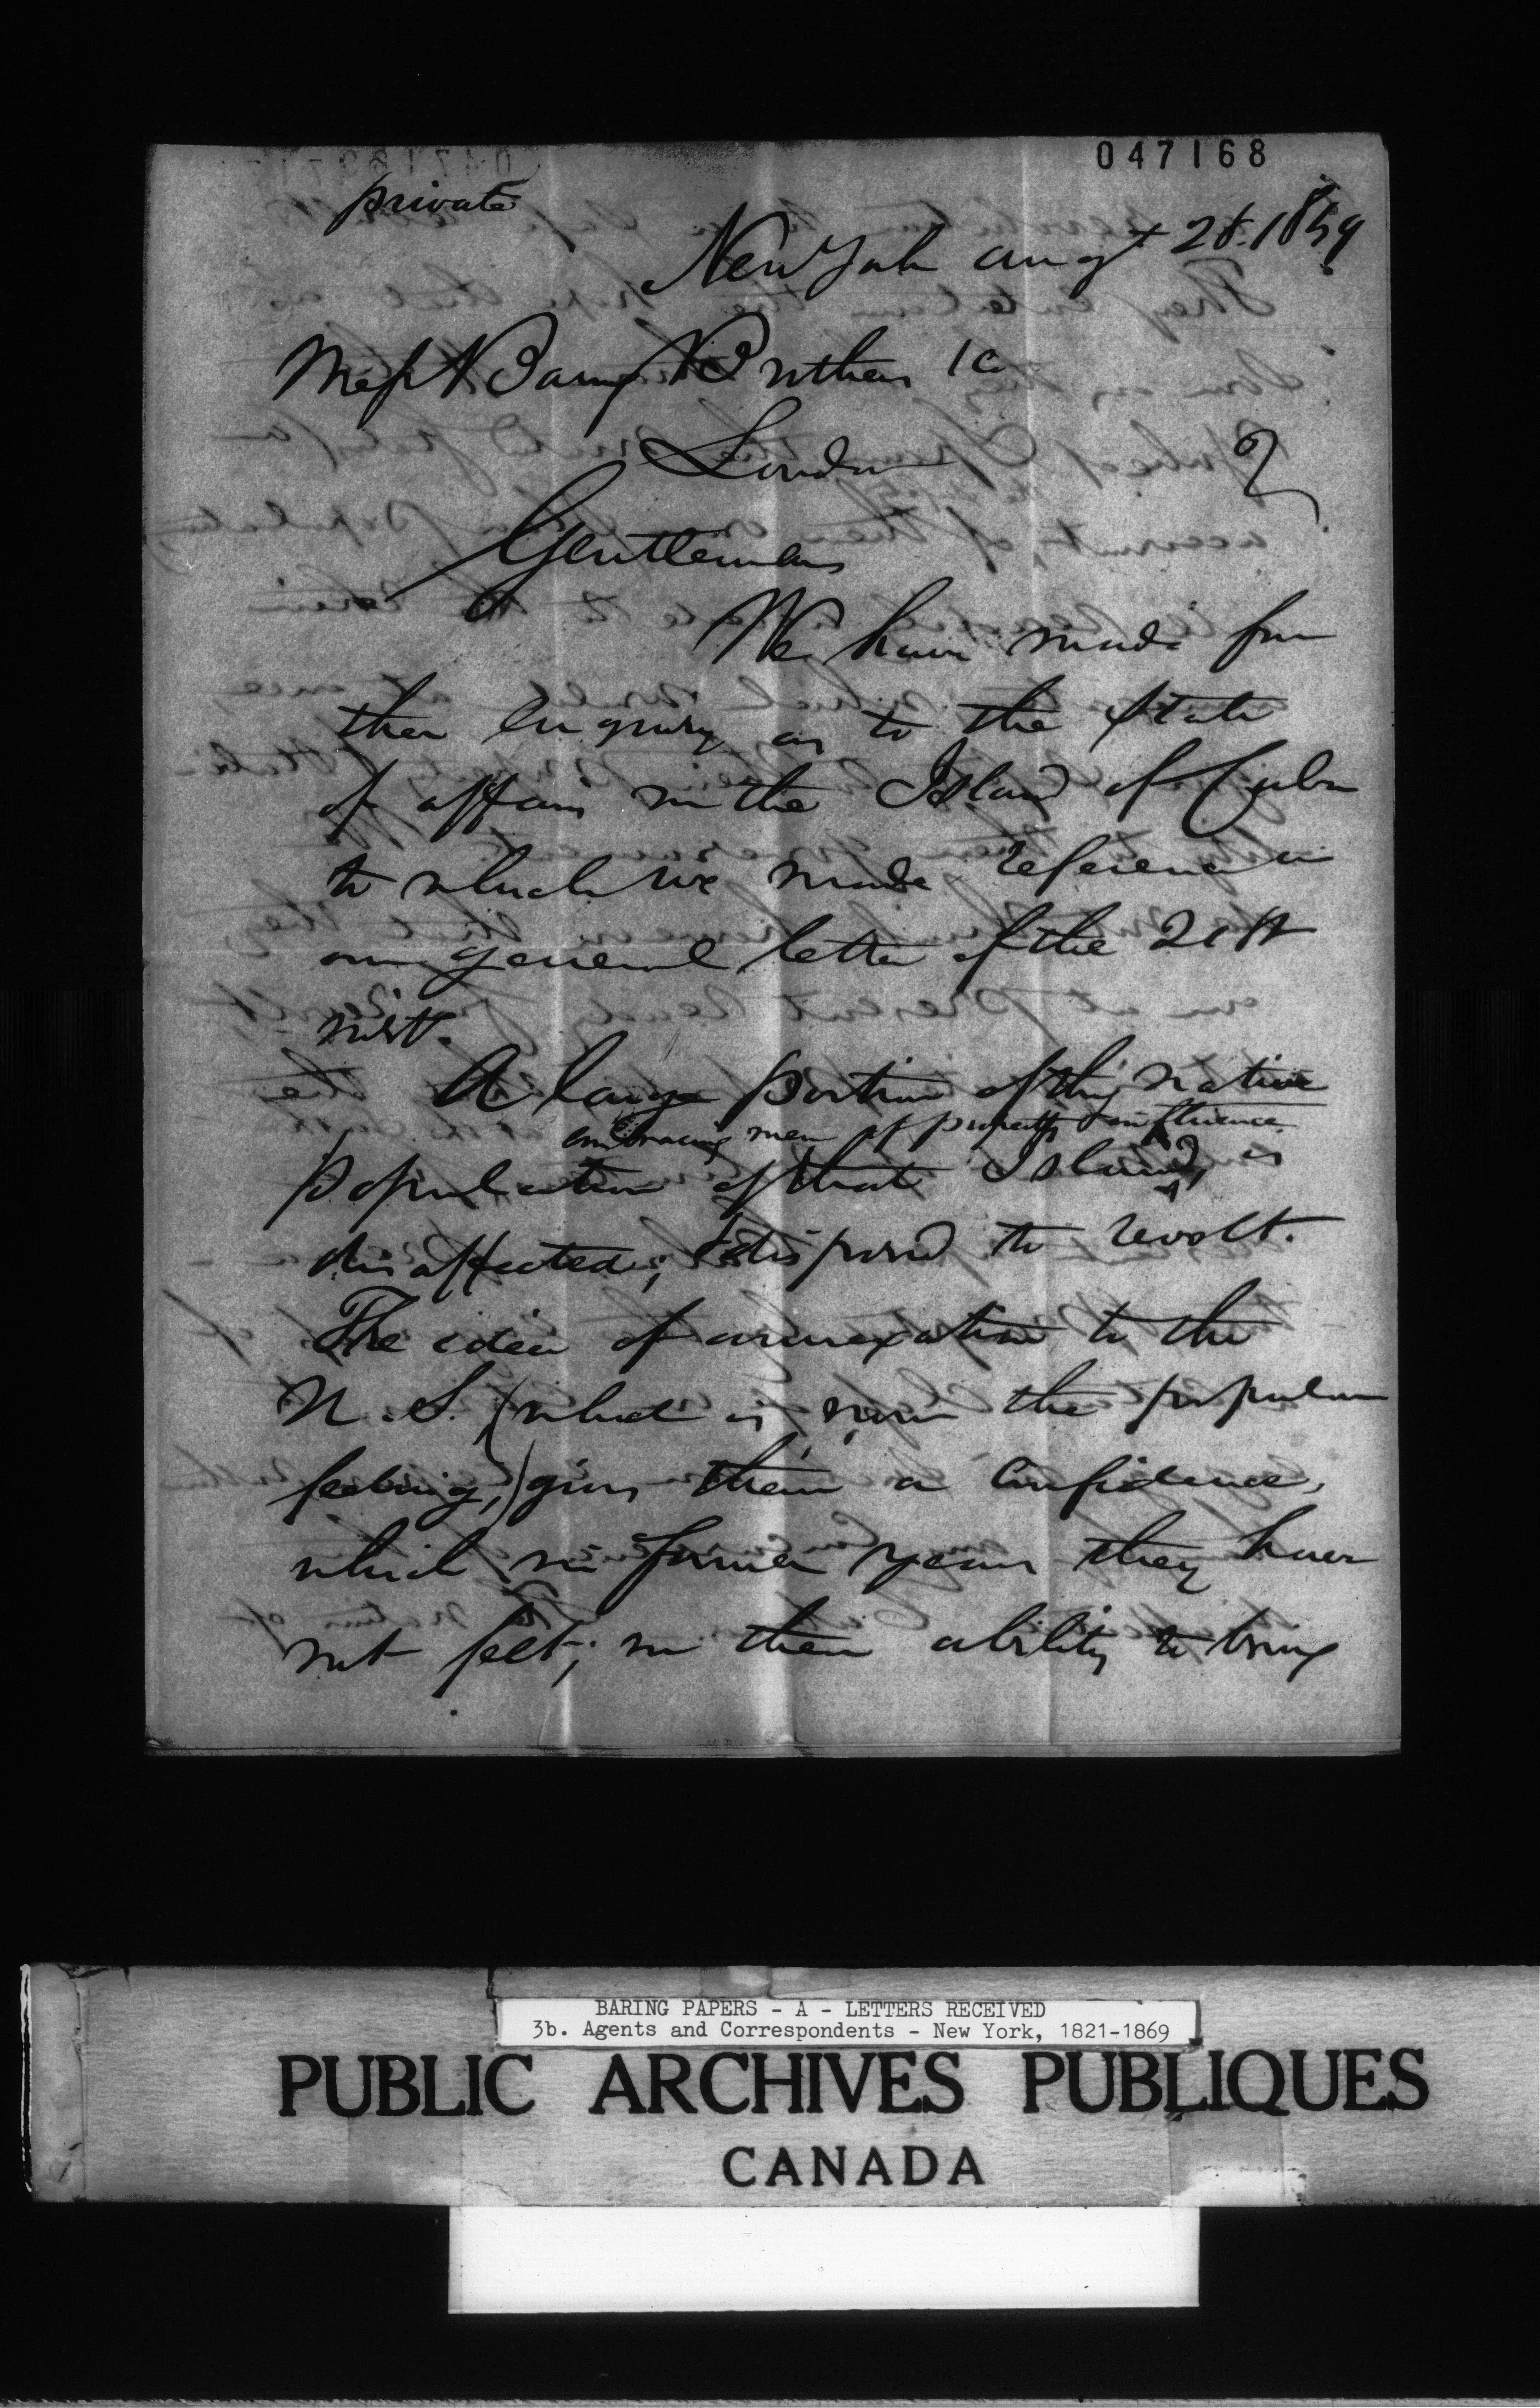 047168
private
New York Augt 28. 1849
Messrs Baring Brothers & Co
London
Gentlemen
We have made fur
ther enquiry as to the state
of affairs in the Island of Cuba
to which we made reference in
our general letter of the 21st
inst.
A large portion of the native
embracing men of property & influence
population of that Island, is
disaffected, & disposed to revolt.
The idea of annexation to the
U.S. (which is now the popular
feeling,) gives them a confidence,
which in former years they have
not felt, in their ability to bring
BARING PAPERS - A - LETTERS RECEIVED
3b. Agents and Correspondents - New York, 1821-1869
PUBLIC ARCHIVES PUBLIQUES
CANADA